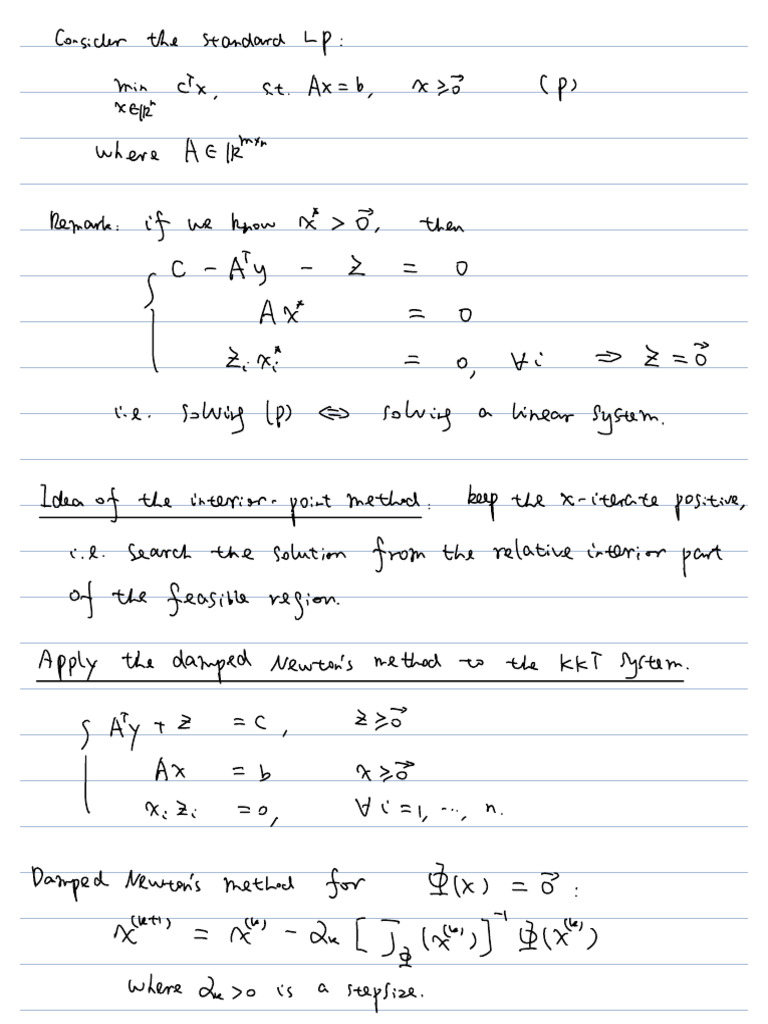 Consider the standard LP:
min cᵀx, s.t. Ax = b, x ≥ 0⃗ (P)
x∈ℝⁿ
where A ∈ ℝᵐˣⁿ
Remark: if we know x* > 0⃗, then
{ C - Aᵀy - z = 0
Ax* = 0
zᵢ xᵢ* = 0, ∀i ⇒ z = 0⃗
i.e. solving (P) ⇔ solving a linear system.
Idea of the interior-point method: keep the x-iterate positive,
i.e. search the solution from the relative interior part
of the feasible region.
Apply the damped Newton's method to the KKT system.
{ Aᵀy + z = c, z ≥ 0⃗
Ax = b x ≥ 0⃗
xᵢ zᵢ = 0, ∀ i = 1, ..., n.
Damped Newton's method for Φ(x) = 0⃗ :
x⁽ᵏ⁺¹⁾ = x⁽ᵏ⁾ - αₖ [ J_Φ (x⁽ᵏ⁾) ]⁻¹ Φ(x⁽ᵏ⁾)
where αₖ > 0 is a stepsize.